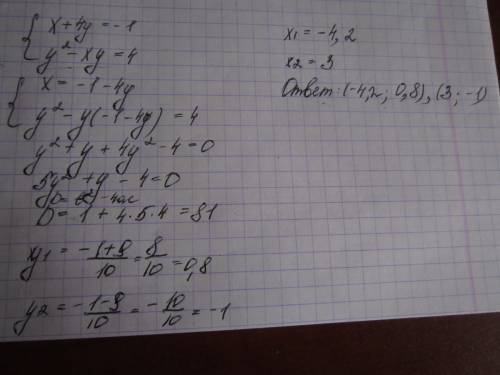 x + 4y = -1
y² - xy = 4
x = -1 - 4y
y² - y(-1 - 4y) = 4
y² + y + 4y² - 4 = 0
5y² + y - 4 = 0
D = b² - 4ac
D = 1 + 4·5·4 = 81
y1 = (-1+9)/10 = 8/10 = 0,8
y2 = (-1-9)/10 = -10/10 = -1
x1 = -4,2
x2 = 3
Ответ: (-4,2; 0,8), (3; -1)